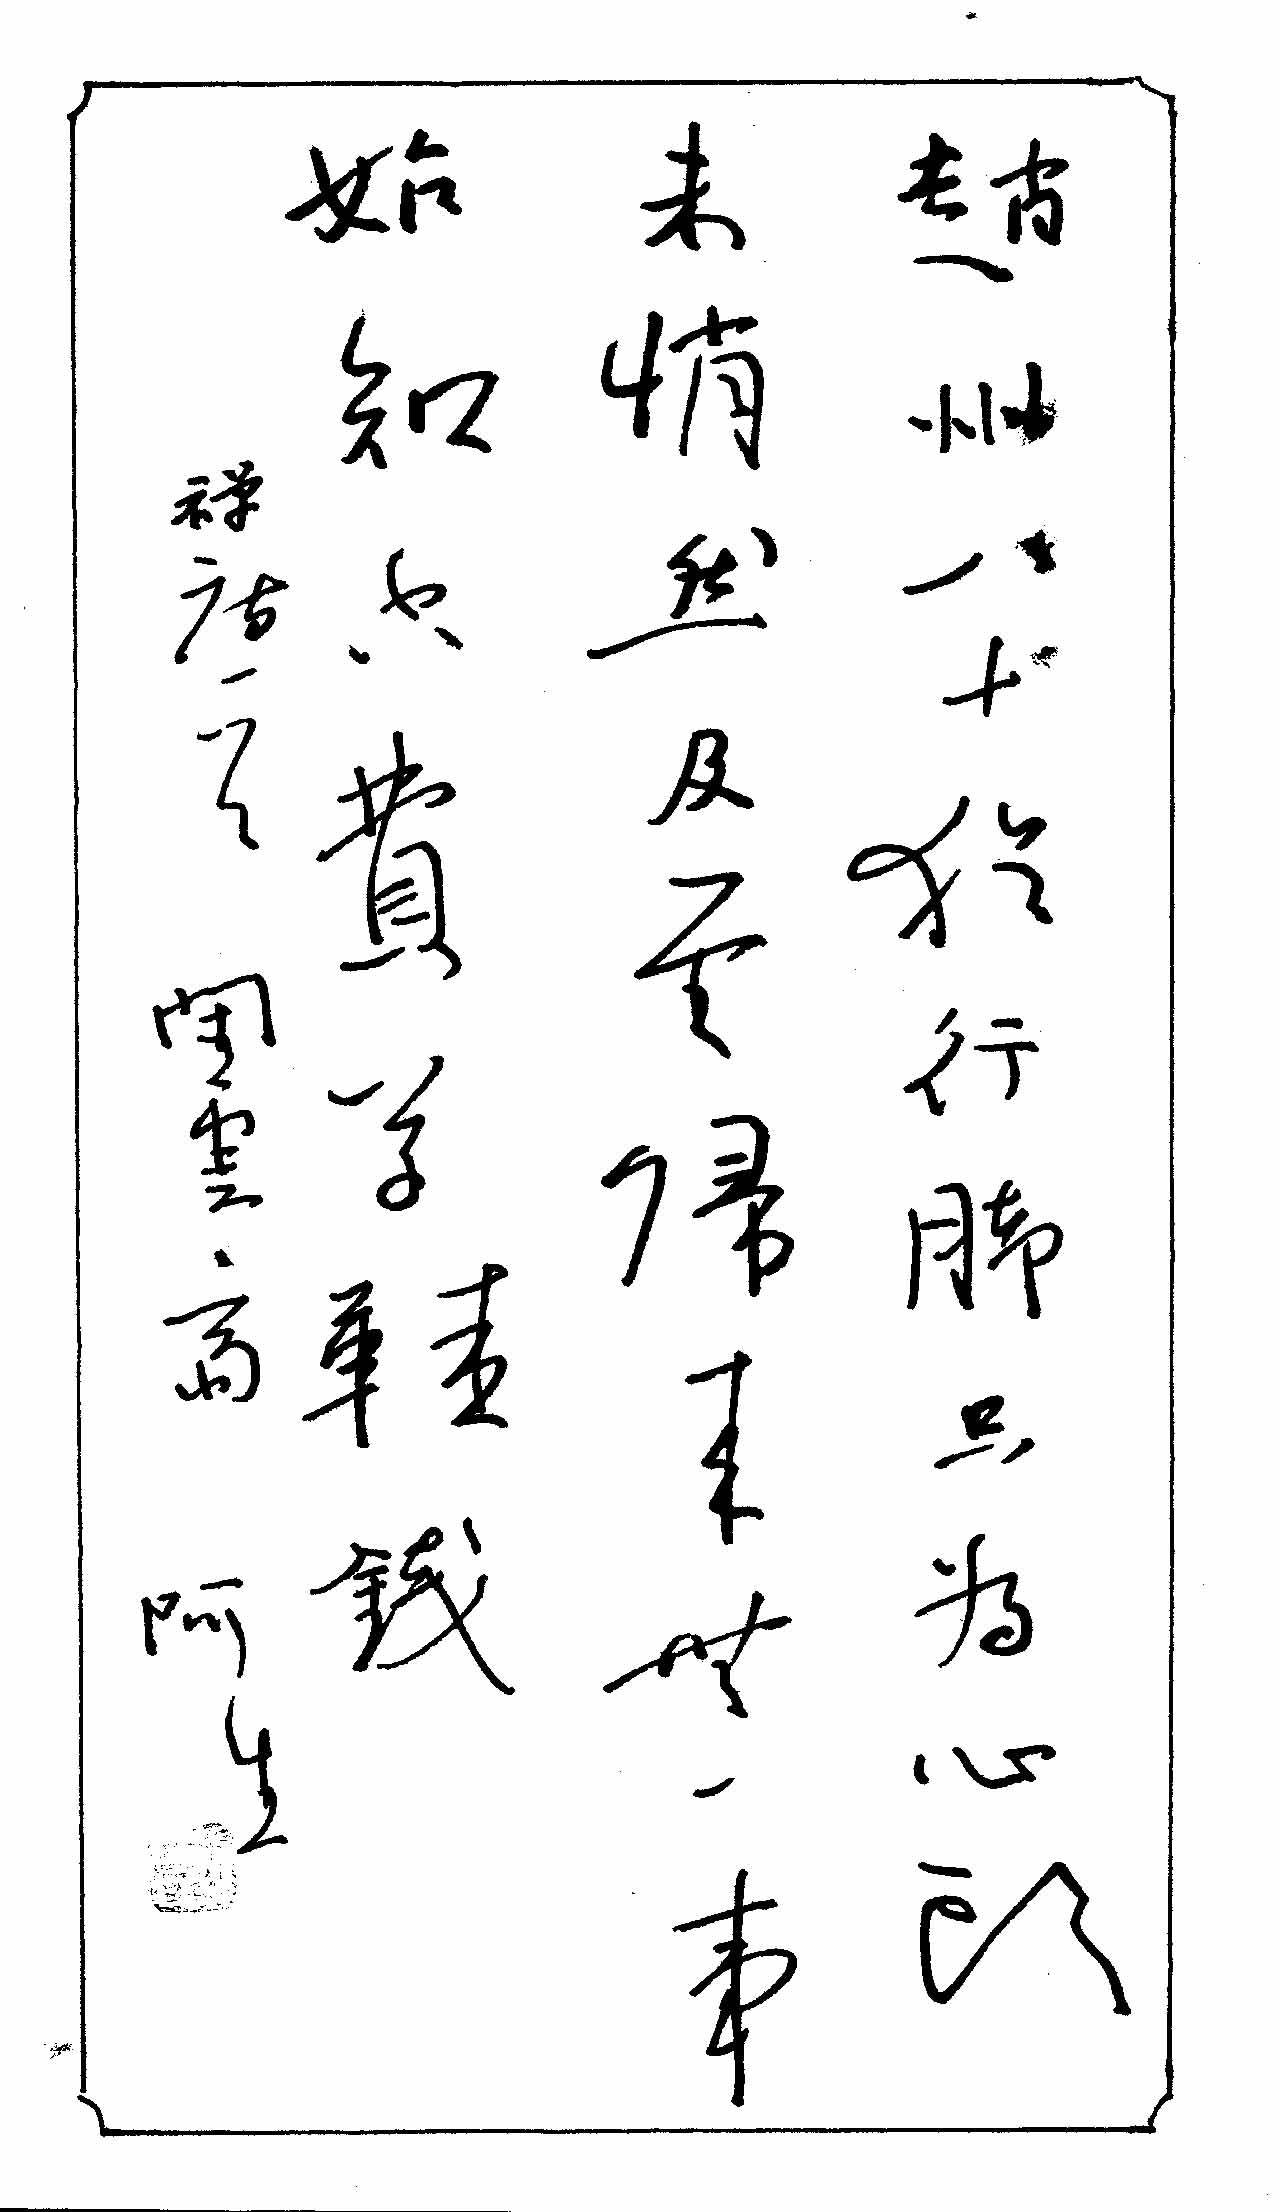 趙州八十猶行脚只為心頭
未悄然及至歸來無一事
始知空費草鞋錢
禅詩一首 雲斋 阿生